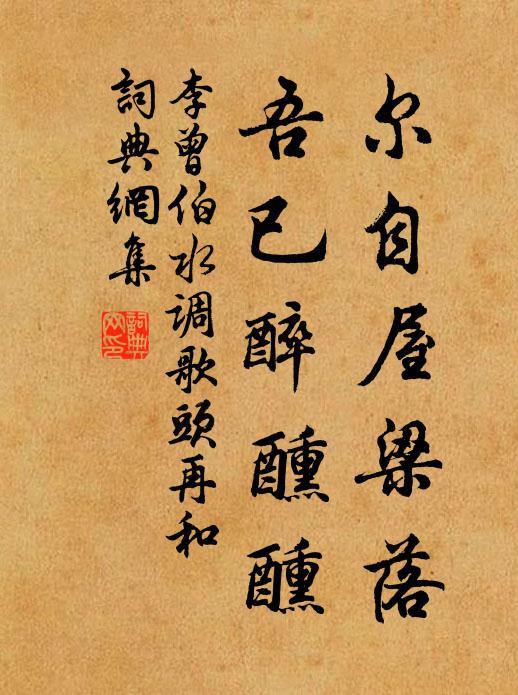 尔自屋梁落
吾已醉醺醺
李曾伯水调歌头再和
詞典網集
詞典